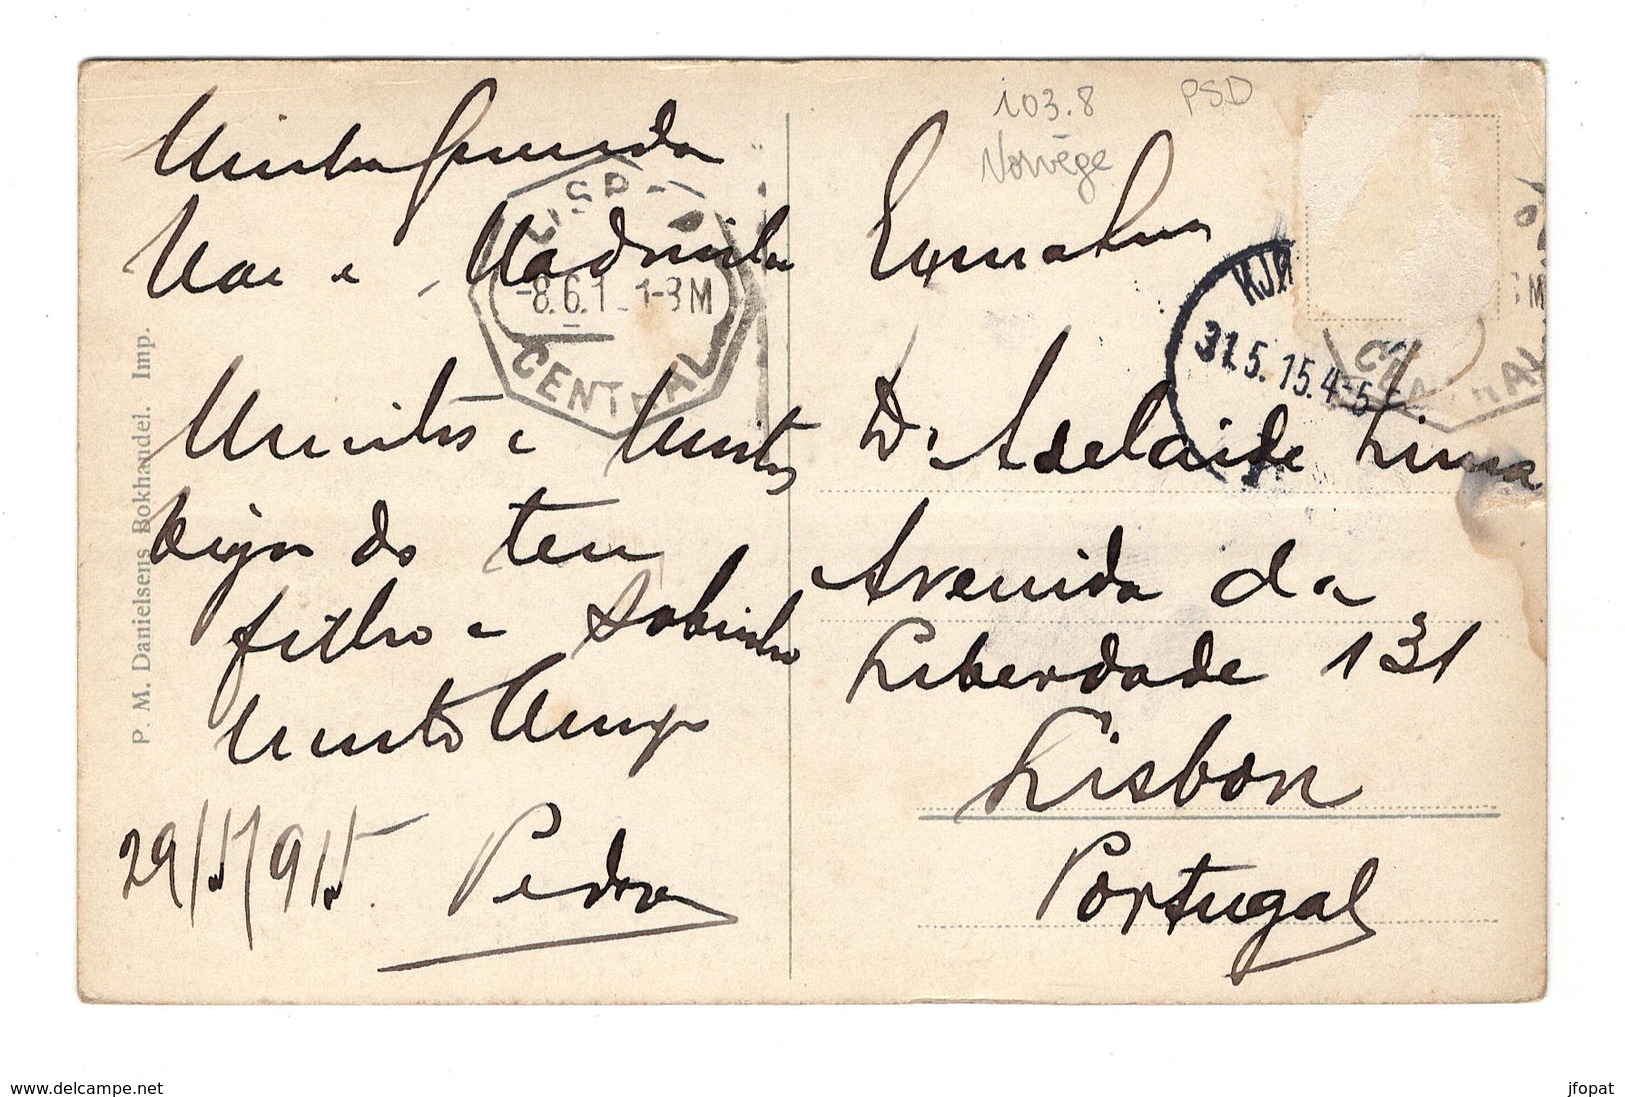 103.8
Norvège
PSD
Minha querida
Mãe e Madrinha
Muitos e muitos
beijos do teu
filho e sobrinho
muito amigo
29/5/915
Pedro
LISB
-8.6.1 1-3M
CENTRAL
Exma Snra
D. Adelaide Lima
Avenida da
Liberdade 131
Lisbon
Portugal
31.5.15.4-5
P. M. Danielsens Bokhandel. Imp.
www.delcampe.net
jfopat